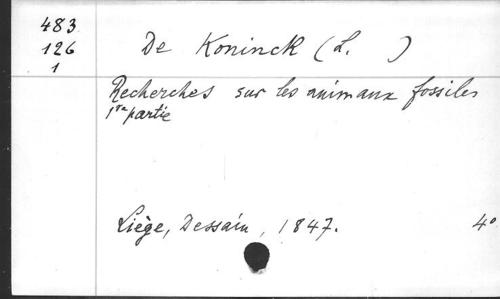 483
126
1
De Koninck (L. )
Recherches sur les animaux fossiles
1re partie
Liège, Dessain, 1847. 4°